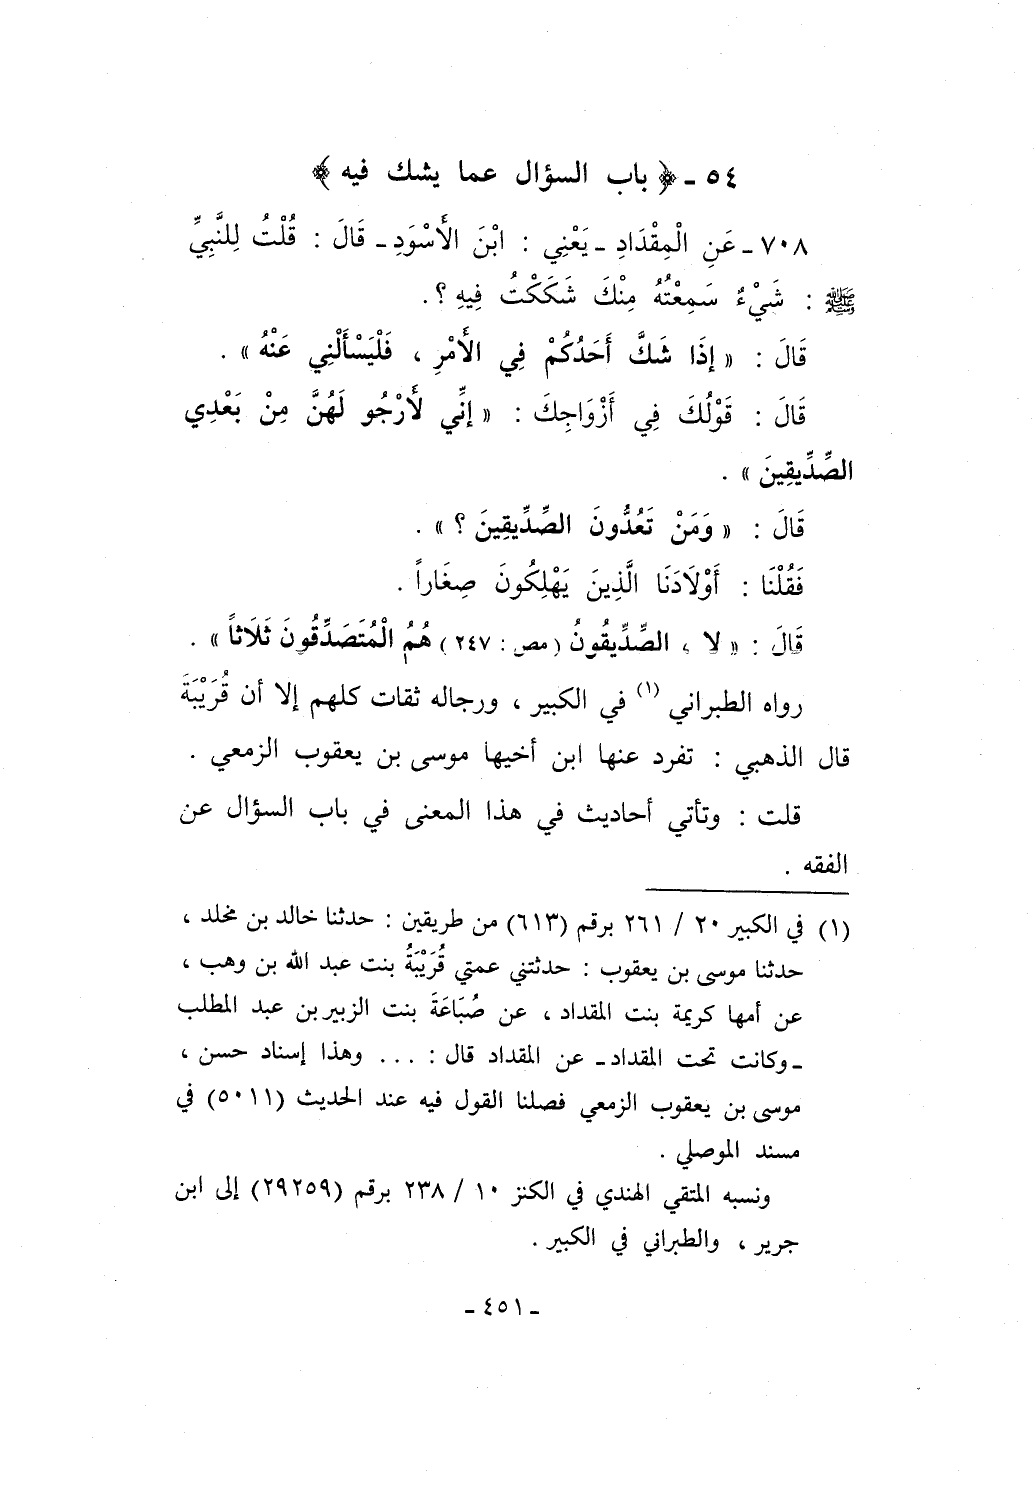 ٥٤ ـ ﴿ باب السؤال عما يشك فيه ﴾
٧٠٨ ـ عَنِ الْمِقْدَادِ ـ يَعْنِي : ابْنَ الأَسْوَدِ ـ قَالَ : قُلْتُ لِلنَّبِيِّ
ﷺ : شَيْءٌ سَمِعْتُهُ مِنْكَ شَكَكْتُ فِيهِ ؟ .
قَالَ : « إِذَا شَكَّ أَحَدُكُمْ فِي الأَمْرِ ، فَلْيَسْأَلْنِي عَنْهُ » .
قَالَ : قَوْلُكَ فِي أَزْوَاجِكَ : « إِنِّي لأَرْجُو لَهُنَّ مِنْ بَعْدِي
الصِّدِّيقِينَ » .
قَالَ : « وَمَنْ تَعُدُّونَ الصِّدِّيقِينَ ؟ » .
فَقُلْنَا : أَوْلَادَنَا الَّذِينَ يَهْلِكُونَ صِغَاراً .
قَالَ : « لا ، الصِّدِّيقُونُ ( مص : ٢٤٧ ) هُمُ الْمُتَصَدِّقُونَ ثَلَاثاً » .
رواه الطبراني (١) في الكبير ، ورجاله ثقات كلهم إلا أن قُرَيْبَةَ
قال الذهبي : تفرد عنها ابن أخيها موسى بن يعقوب الزمعي .
قلت : وتأتي أحاديث في هذا المعنى في باب السؤال عن
الفقه .
(١) في الكبير ٢٠ / ٢٦١ برقم (٦١٣) من طريقين : حدثنا خالد بن مخلد ،
حدثنا موسى بن يعقوب : حدثتني عمتي قُرَيْبَةُ بنت عبد الله بن وهب ،
عن أمها كريمة بنت المقداد ، عن ضُبَاعَةَ بنت الزبير بن عبد المطلب
ـ وكانت تحت المقداد ـ عن المقداد قال : ... وهذا إسناد حسن ،
موسى بن يعقوب الزمعي فصلنا القول فيه عند الحديث (٥٠١١) في
مسند الموصلي .
ونسبه المتقي الهندي في الكنز ١٠ / ٢٣٨ برقم (٢٩٢٥٩) إلى ابن
جرير ، والطبراني في الكبير .
ـ ٤٥١ ـ